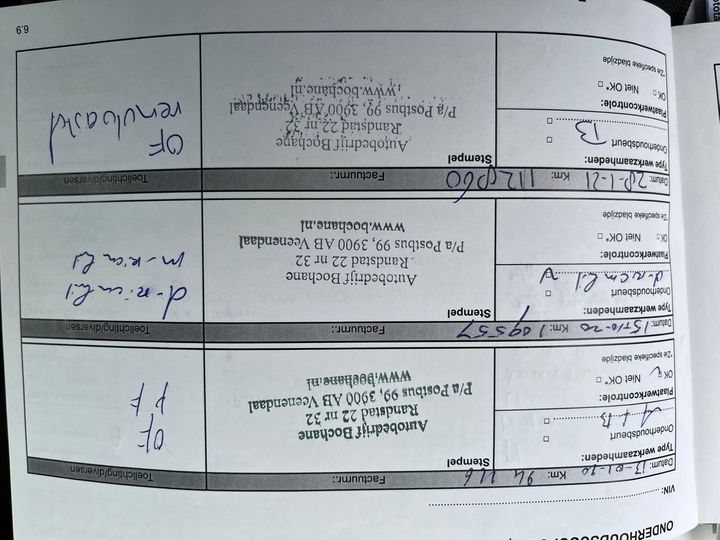 VIN:
Datum: 13-01-20 Km: 94 226 Factuurnr.: Toelichting/diversen
Type werkzaamheden:
Onderhoudsbeurt
A+B
Plaatwerkcontrole:
OK Niet OK*
*Zie specifieke bladzijde
Stempel
Autobedrijf Bochane
Randstad 22 nr 32
P/a Postbus 99, 3900 AB Veenendaal
www.bochane.nl
OF
PF
Datum: 15-10-20 Km: 109557 Factuurnr.: Toelichting/diversen
Type werkzaamheden:
Onderhoudsbeurt A
Plaatwerkcontrole:
OK Niet OK*
*Zie specifieke bladzijde
Stempel
Autobedrijf Bochane
Randstad 22 nr 32
P/a Postbus 99, 3900 AB Veenendaal
www.bochane.nl
Datum: 28-1-21 Km: 112860 Factuurnr.: Toelichting/diversen
Type werkzaamheden:
Onderhoudsbeurt
B
Plaatwerkcontrole:
OK Niet OK*
*Zie specifieke bladzijde
Stempel
Autobedrijf Bochane
Randstad 22 nr 32
P/a Postbus 99, 3900 AB Veenendaal
www.bochane.nl
OF
6.9